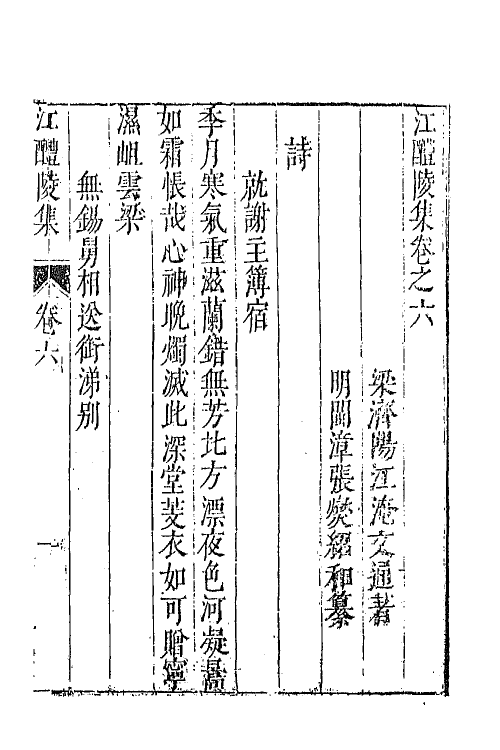 江醴陵集卷之六
梁濟陽江淹文通著
明閩漳張燮紹和纂
詩
就謝主簿宿
季月寒氣重滋蘭錯無芳北方漂夜色河凝畫
如霜悵哉心神晚燭滅此深堂芰衣如可贈寧
濕岨雲梁
無錫舅相送銜涕别
江醴陵集
卷六
一